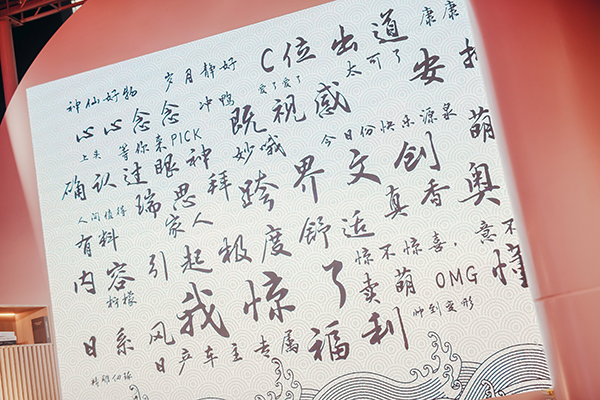 神仙好物 岁月静好 C位出道 康康
心心念念 冲鸭 爱了爱了 太可了 安排
上头 等你来PICK 既视感
确认过眼神 妙哦 今日份快乐源泉 萌
人间值得 瑞思拜 跨界文创 奥
有料 家人 真香
内容引起极度舒适
柠檬 惊不惊喜,意不
我惊了 卖萌 OMG 懂
日系风 帅到变形
日产车主专属福利